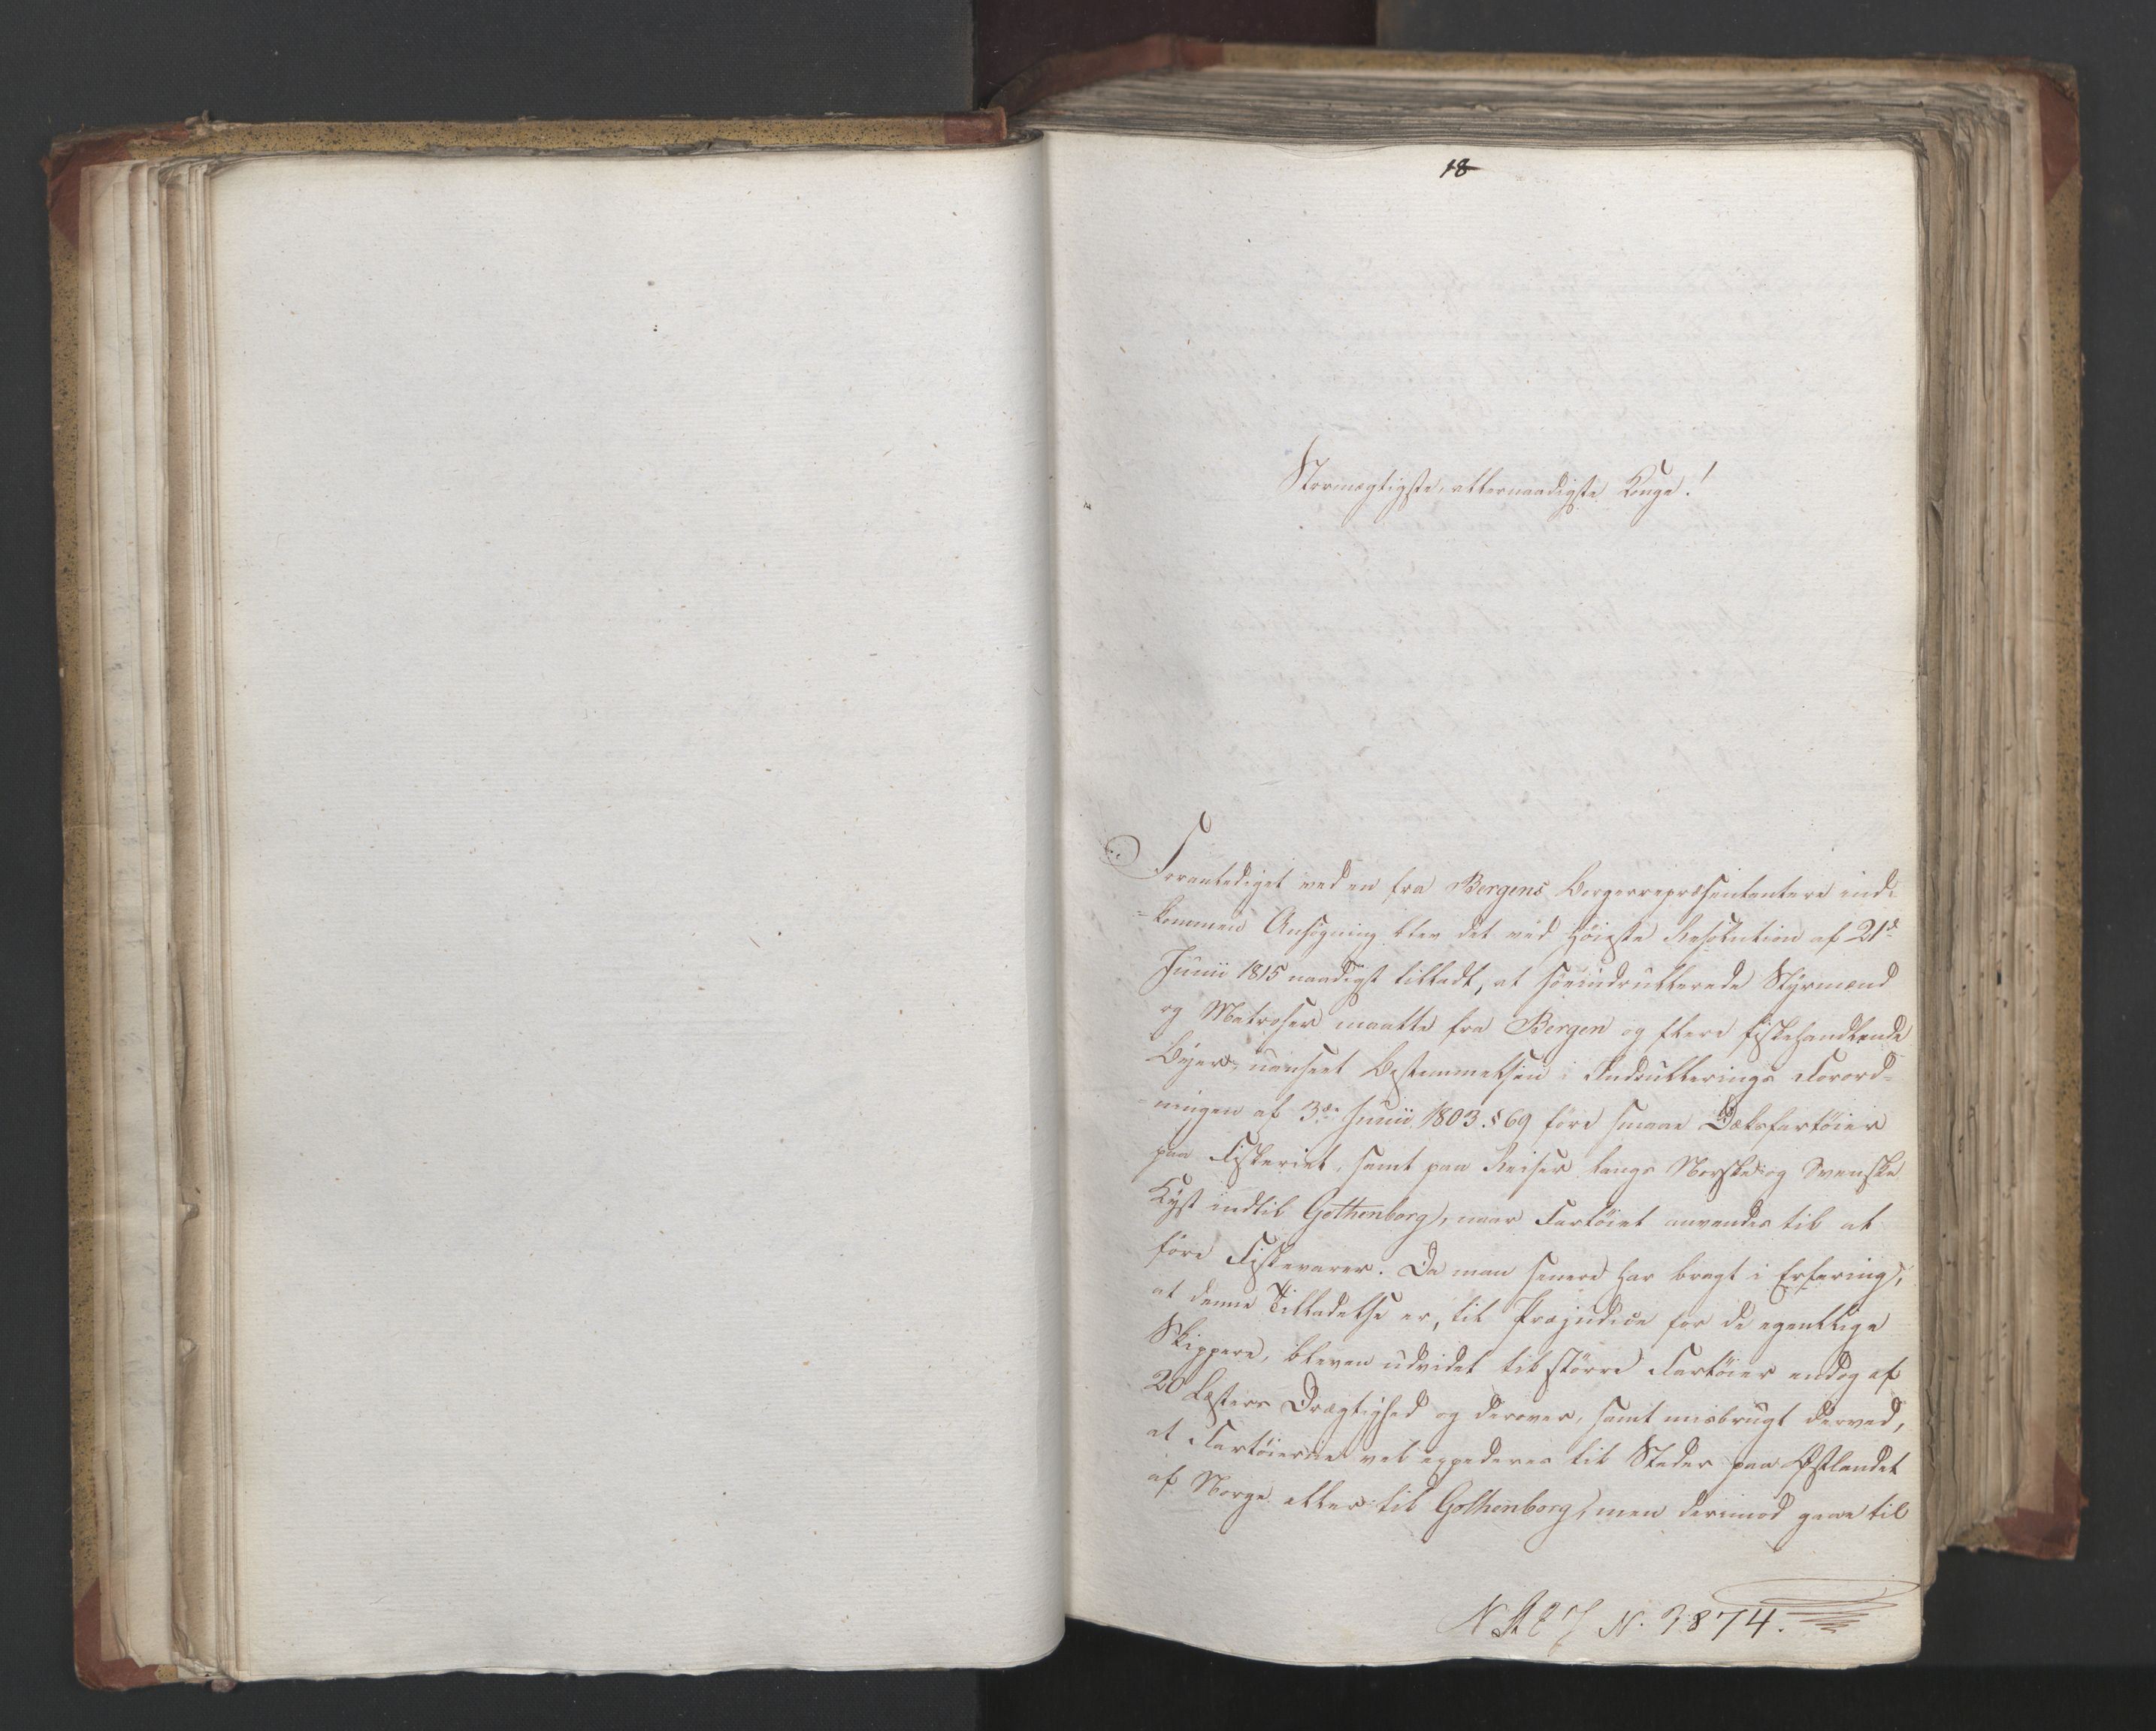 18
Stormægtigste, allernaadigste Konge!
Foranlediget ved en fra Bergens Borgerrepræsentantere ind-
-kommen Ansøgning blev det ved høieste Resolution af 21de
Junii 1815 naadigst tilladt, at søeindrullerede Styrmænd
og Matroser maatte fra Bergen og flere fiskehandlende
Byer, uanseet Bestemmelsen i Indrullerings Forord-
-ningen af 3die Junii 1803 § 69 føre smaae Dæksfartøier
paa Fiskeriet, samt paa Reiser langs Norske og Svenske
Kyst indtil Gothenborg, naar Fartøiet anvendes til at
føre Fiskevarer. Da man senere har bragt i Erfaring,
at denne Tilladelse er, til Præjudice for de egentlige
Skippere, bleven udvidet til større Fartøier endog af
20 Læsters Drægtighed og derover, samt misbrugt derved,
at Fartøierne vel expederes til Steder paa Østlandet
af Norge eller til Gothenborg, men derimod gaae til
N. 3874.